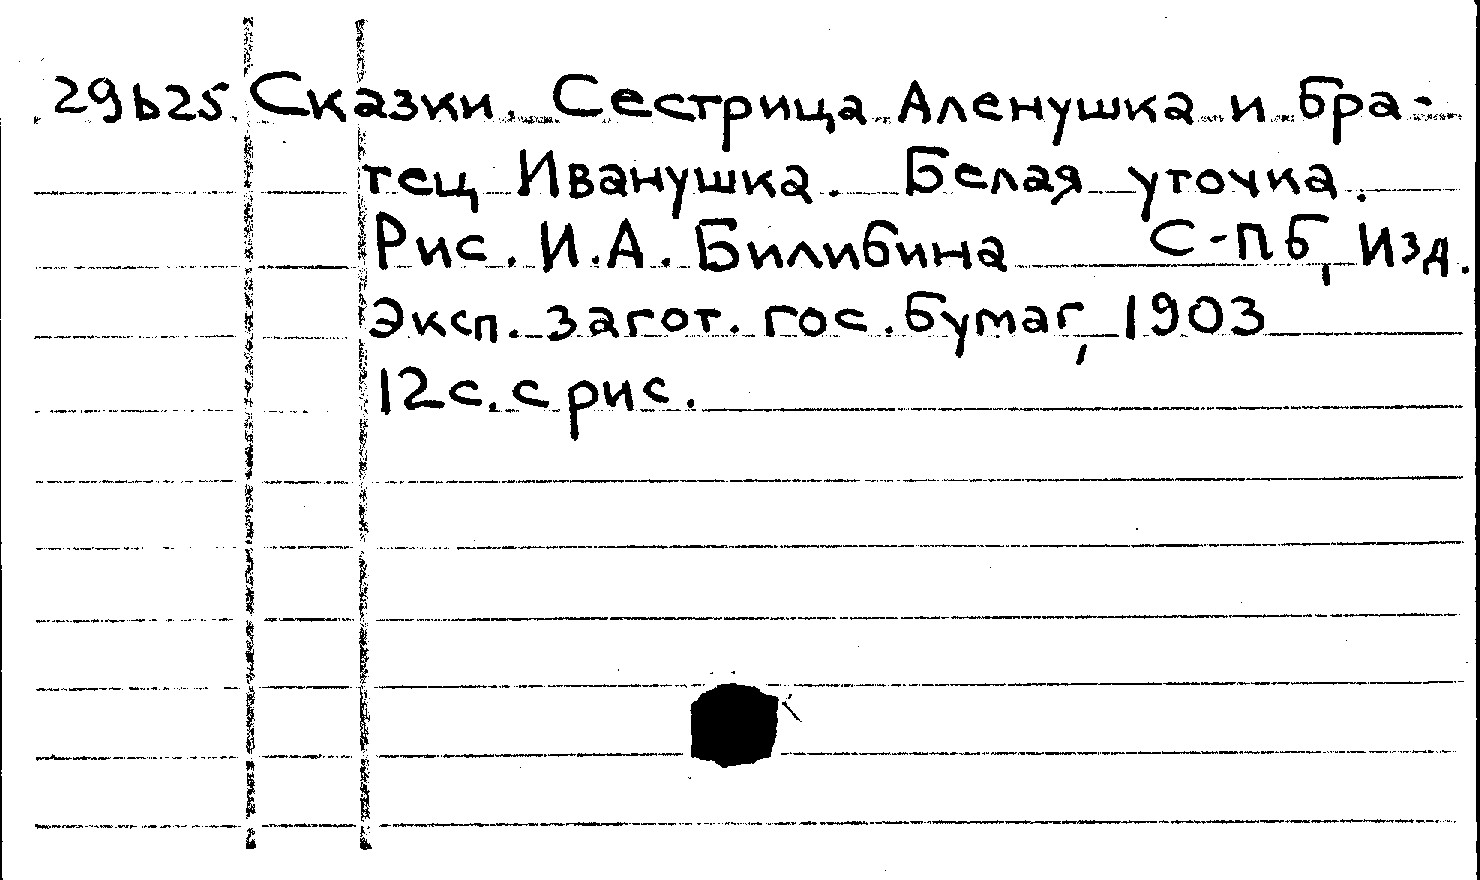 29b25 Сказки. Сестрица Аленушка и бра-
тец Иванушка. Белая уточка.
Рис. И.А. Билибина С-Пб, Изд.
Эксп. загот. гос. бумаг, 1903
12 с. с рис.